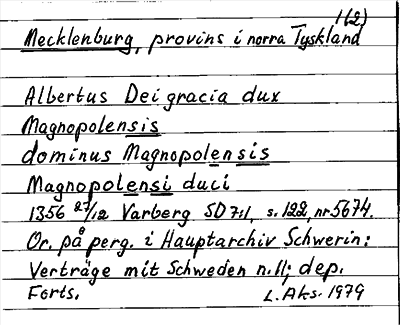 1(2)
Mecklenburg, provins i norra Tyskland
Albertus Dei gracia dux
Magnopolensis
dominus Magnopolensis
Magnopolensi duci
1356 27/12 Varberg SD 7:1, s. 122, nr 5674.
Or. på perg. i Hauptarchiv Schwerin:
Verträge mit Schweden n. 11; dep.
Forts. L. Aks. 1979